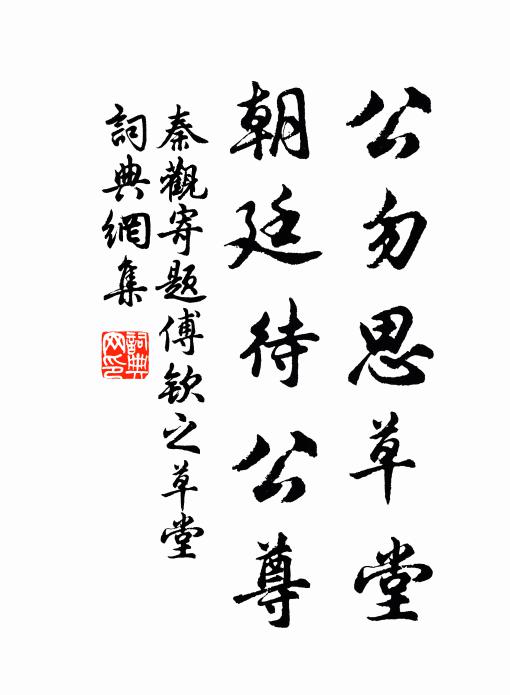 公勿思草堂
朝廷待公尊
秦觀寄題傅欽之草堂
詞典網集
詞典網印